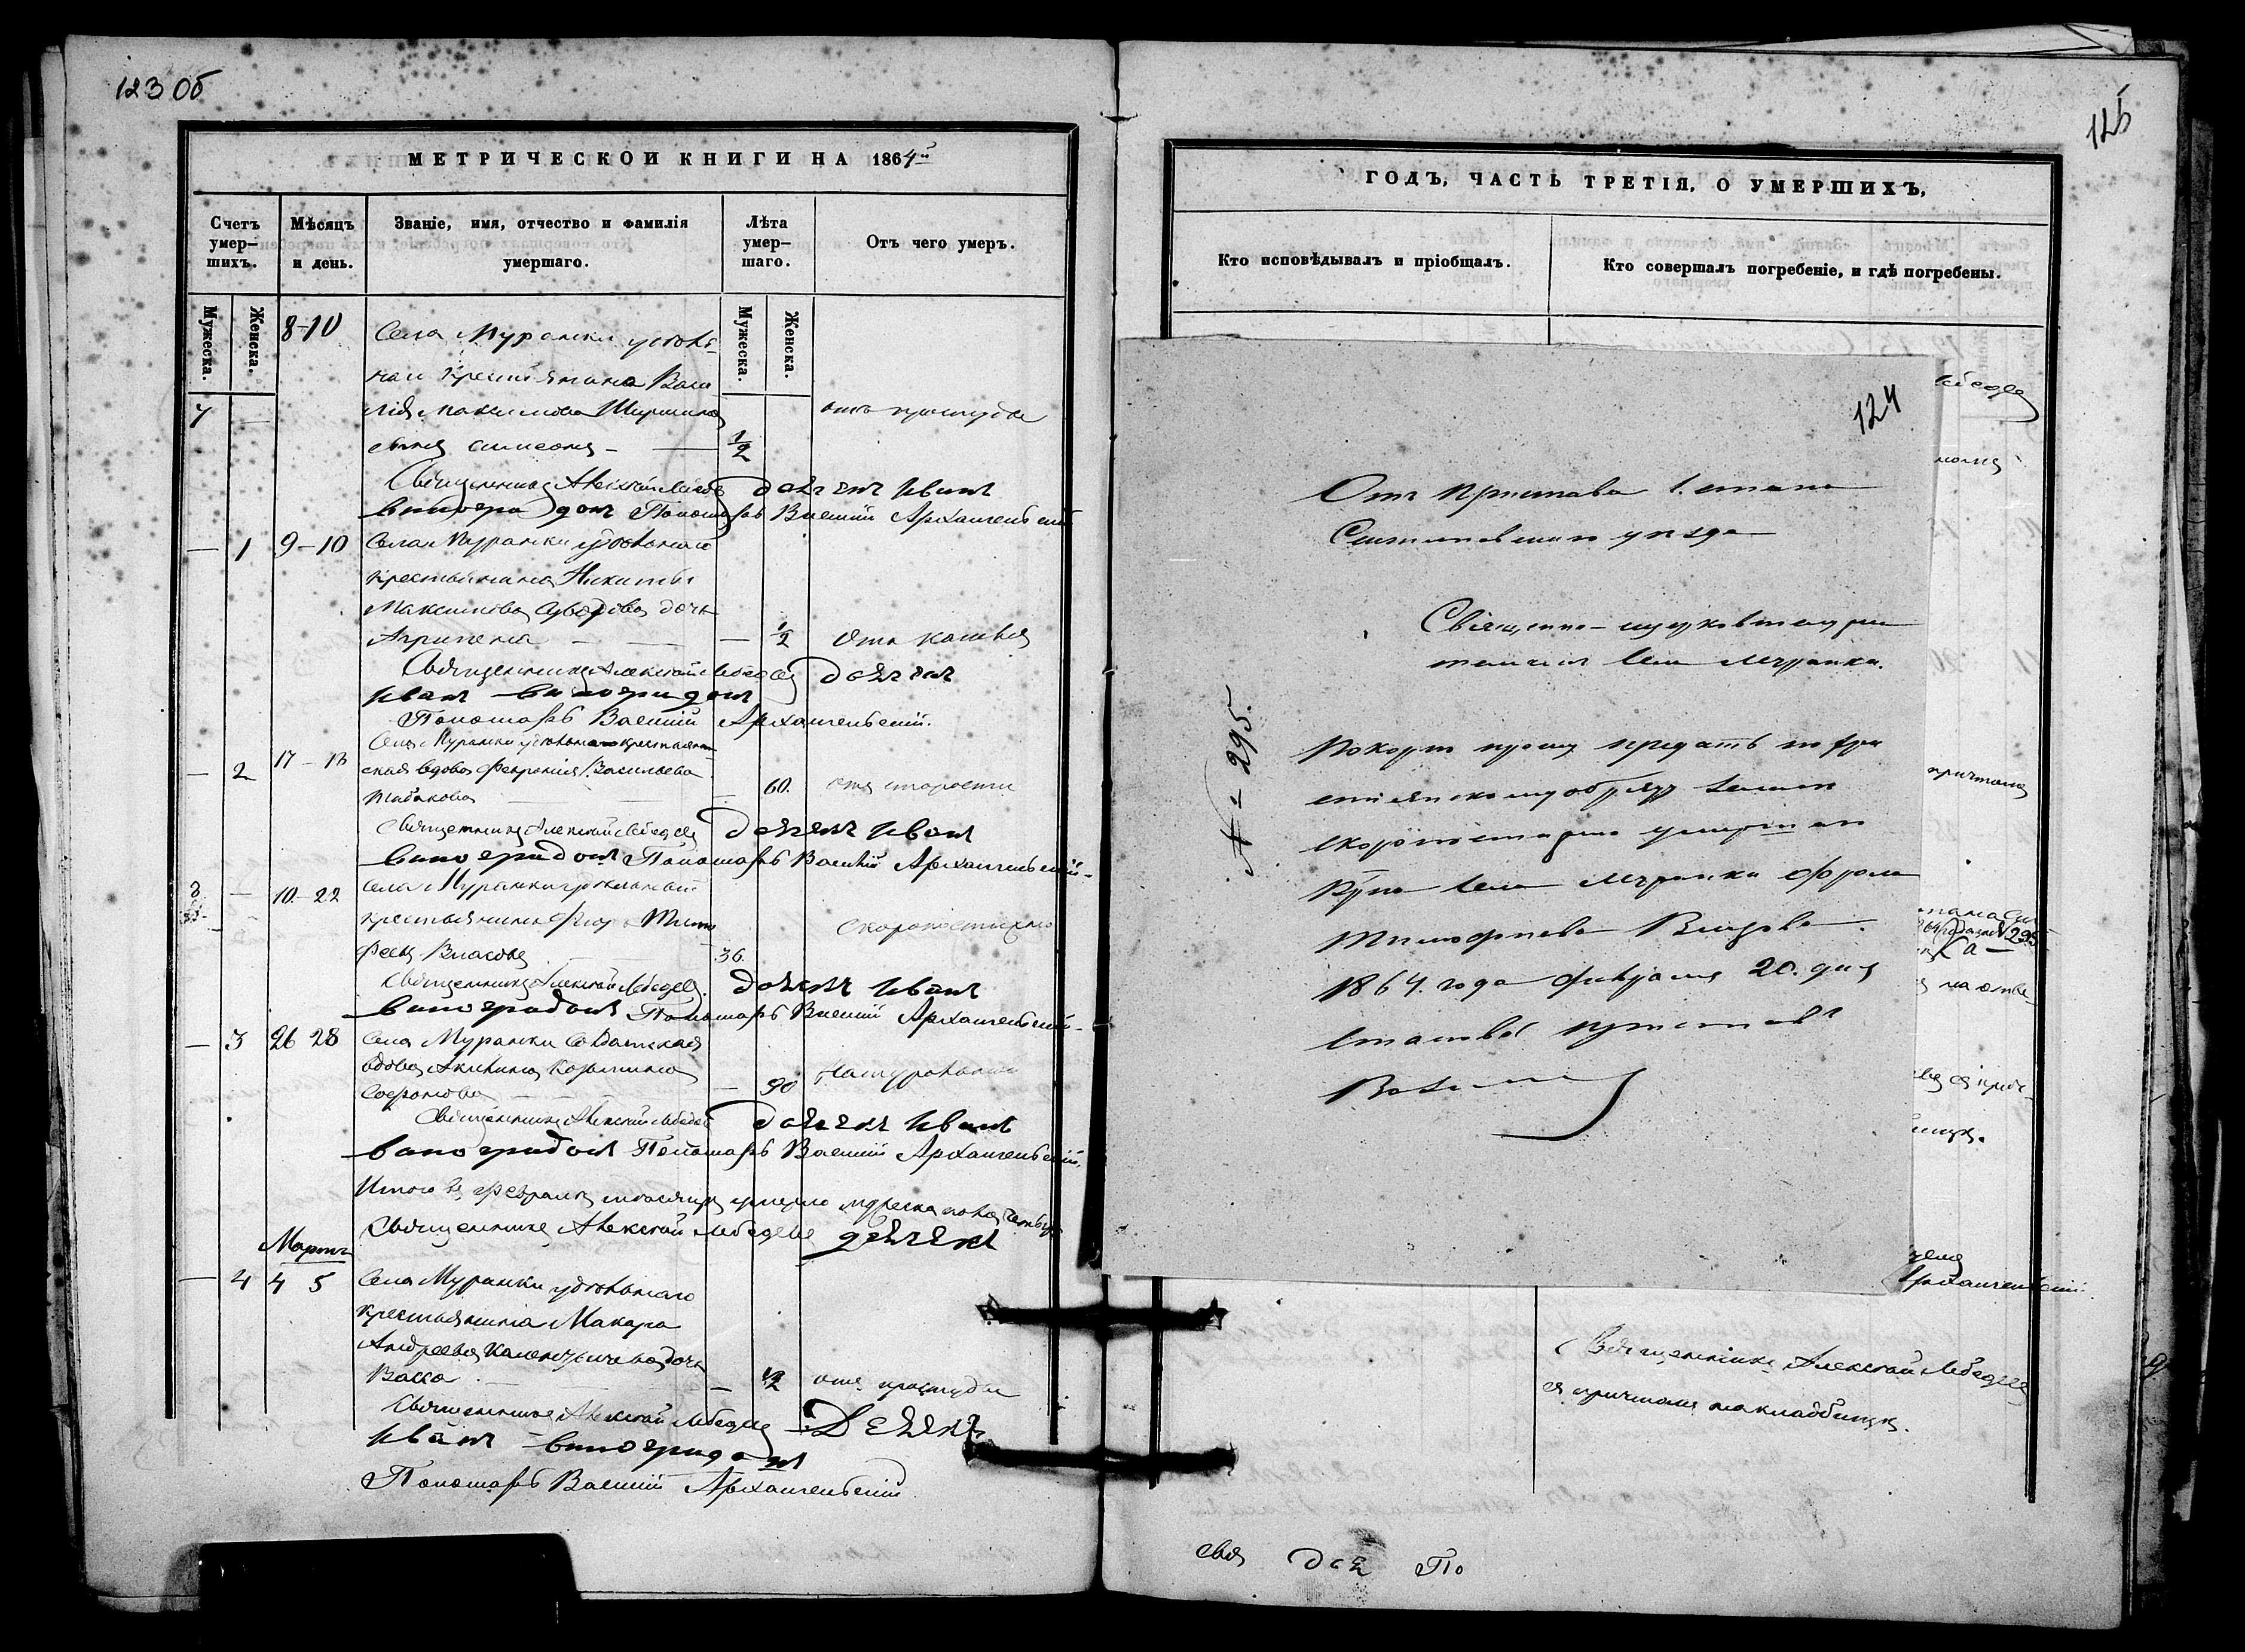 123 об
МЕТРИЧЕСКОЙ КНИГИ НА 1864й
Счетъ умер-шихъ.
Мѣсяцъ и день.
Званіе, имя, отчество и фамилія умершаго.
Лѣта умер-шаго.
Отъ чего умеръ.
Мужеска.
Женска.
Мужеска.
Женска.
8-10
Села Муранки удѣль-
наго крестьянина Васи
7 — лія Максимова Ширшова отъ простуды
сынъ Симеонъ — 1/2
Священникъ Алексѣй Лебедевъ дьячекъ Иванъ
Виноградовъ Пономарь Василій Архангельскій
— 1 9-10 Села Муранки удѣльнаго
крестьянина Никиты
Максимова дочь
Агрипена — — 1/2 отъ кашля
Священникъ Алексѣй Лебедевъ дьячекъ
Иванъ Виноградовъ
Пономарь Василій Архангельскій.
Села Муранки удѣльнаго крестьян-
— 2 17-18 ская вдова Февронія Васильева
60. отъ старости
Священникъ Алексѣй Лебедевъ дьячекъ Иванъ
Виноградовъ Пономарь Василій Архангельскій
8 — 10-22 Села Муранки удѣльный
крестьянинъ Тимо скоропостижно
феевъ Власовъ 36.
Священникъ Алексѣй Лебедевъ. дьячекъ Иванъ
Виноградовъ Пономарь Василій Архангельскій
— 3 26 28 Села Муранки солдатская
вдова Акилина Козьмина
Софронова — 90 натурально
Священникъ Алексѣй Лебедевъ дьячекъ Иванъ
Виноградовъ Пономарь Василій Архангельскій.
Итого въ Февралѣ мѣсяцѣ умерло мужеска пола
Священникъ Алексѣй Лебедевъ дьячекъ
Мартъ
— 4 4 5 Села Муранки удѣльнаго
крестьянина Макара
Андреева дочь
Васса — 1/2 отъ простуды
Священникъ Алексѣй Лебедевъ Дьячекъ
Иванъ Виноградовъ
Пономарь Василій Архангельскій
125
ГОДЪ, ЧАСТЬ ТРЕТІЯ, О УМЕРШИХЪ,
Кто исповѣдывалъ и пріобщалъ.
Кто совершалъ погребеніе, и гдѣ погребены.
124
Отъ Пристава 1. стана
уѣзда
Священно-служительямъ
села Муранки.
№ 295.
Покорно прошу предать по хри
стіянскому обряду землѣ
скоропостижно умершаго
села Муранки Фрола
Тимофеева Власова.
1864. года февраля 20. дня
Становой приставъ
Священникъ Алексѣй Лебедевъ
съ причтомъ на кладбищѣ.
Свя дья По